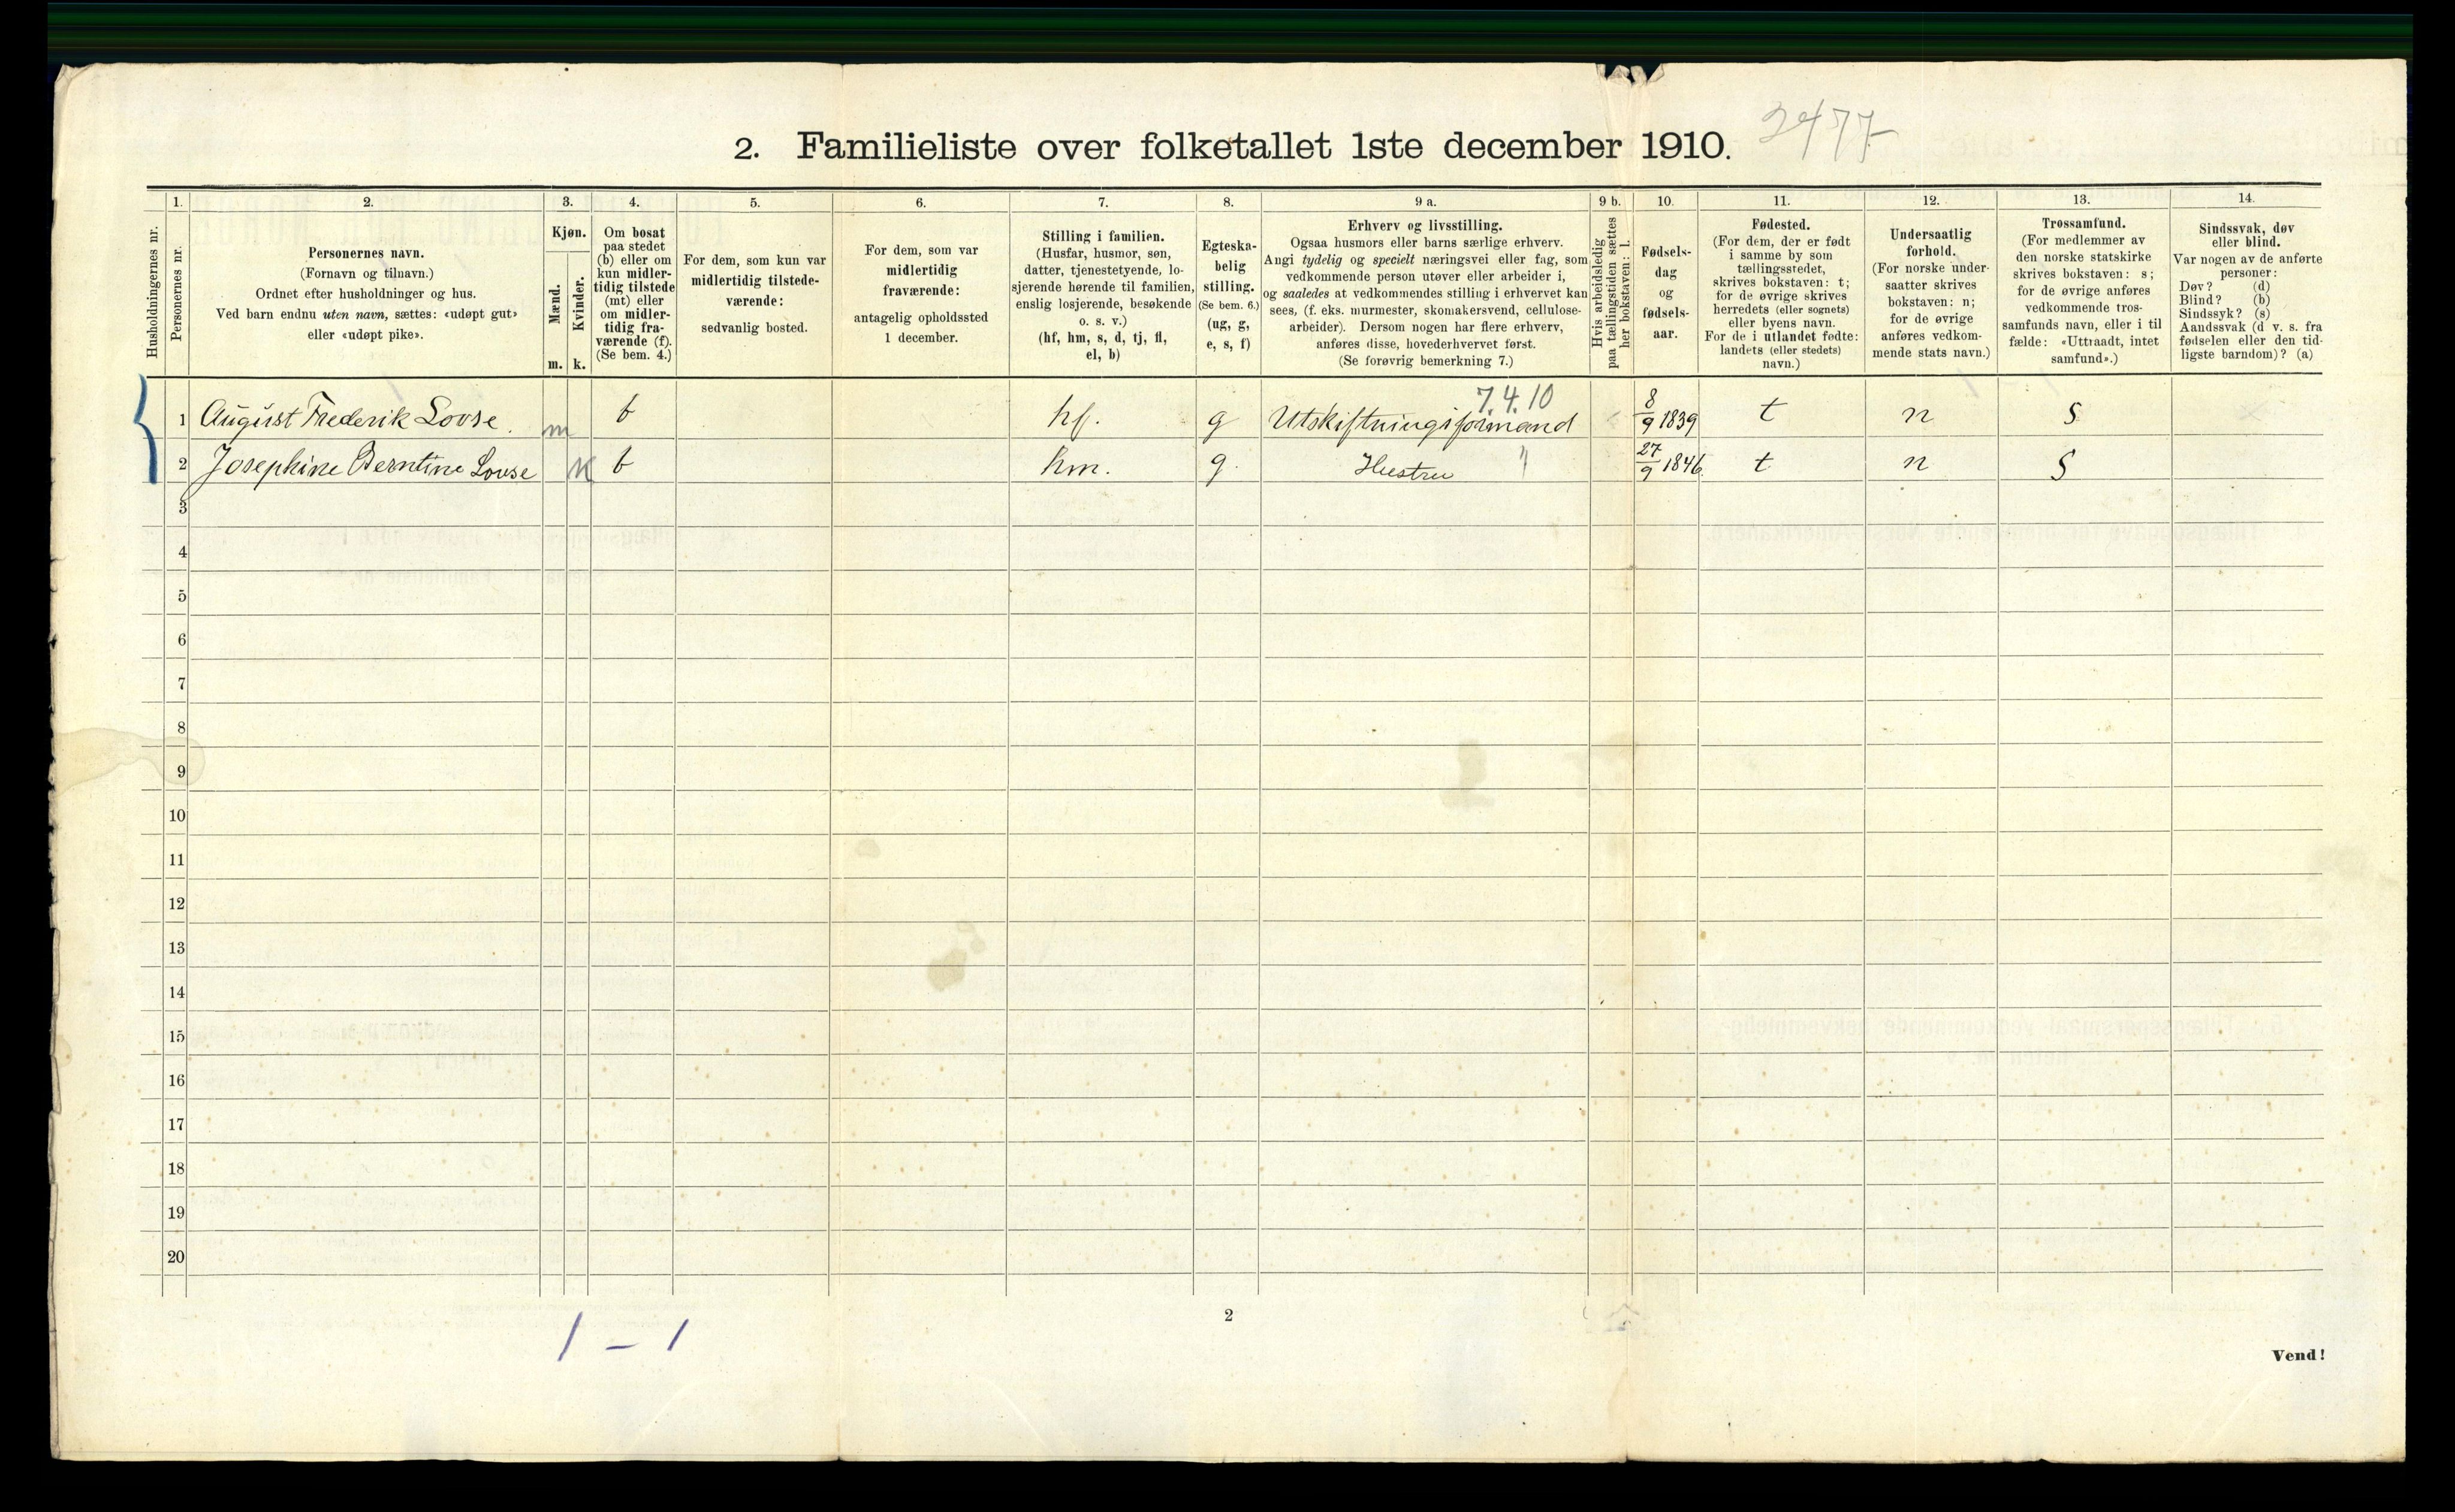 2. Familieliste over folketallet 1ste december 1910.
2477
1.
2.
3.
4.
5.
6.
7.
8.
9 a.
9 b.
10.
11.
12.
13.
14.
Husholdningernes nr.
Personernes nr.
Personernes navn.
(Fornavn og tilnavn.)
Ordnet efter husholdninger og hus.
Ved barn endnu uten navn, sættes: «udøpt gut»
eller «udøpt pike».
Kjøn.
Mænd.
Kvinder.
m.
k.
Om bosat
paa stedet
(b) eller om
kun midler-
tidig tilstede
(mt) eller
om midler-
tidig fra-
værende (f).
(Se bem. 4.)
For dem, som kun var
midlertidig tilstede-
værende:
sedvanlig bosted.
For dem, som var
midlertidig
fraværende:
antagelig opholdssted
1 december.
Stilling i familien.
(Husfar, husmor, søn,
datter, tjenestetyende, lo-
sjerende hørende til familien,
enslig losjerende, besøkende
o. s. v.)
(hf, hm, s, d, tj, fl,
el, b)
Egteska-
belig
stilling.
(Se bem. 6.)
(ug, g,
e, s, f)
Erhverv og livsstilling.
Ogsaa husmors eller barns særlige erhverv.
Angi tydelig og specielt næringsvei eller fag, som
vedkommende person utøver eller arbeider i,
og saaledes at vedkommendes stilling i erhvervet kan
sees, (f. eks. murmester, skomakersvend, cellulose-
arbeider). Dersom nogen har flere erhverv,
anføres disse, hovederhvervet først.
(Se forøvrig bemerkning 7.)
Hvis arbeidsledig
paa tællingstiden sættes
her bokstaven: l.
Fødsels-
dag
og
fødsels-
aar.
Fødested.
(For dem, der er født
i samme by som
tællingsstedet,
skrives bokstaven: t;
for de øvrige skrives
herredets (eller sognets)
eller byens navn.
For de i utlandet fødte:
landets (eller stedets)
navn.)
Undersaatlig
forhold.
(For norske under-
saatter skrives
bokstaven: n;
for de øvrige
anføres vedkom-
mende stats navn.)
Trossamfund.
(For medlemmer av
den norske statskirke
skrives bokstaven: s;
for de øvrige anføres
vedkommende tros-
samfunds navn, eller i til
fælde: «Uttraadt, intet
samfund».)
Sindssvak, døv
eller blind.
Var nogen av de anførte
personer:
Døv? (d)
Blind? (b)
Sindssyk? (s)
Aandssvak (d v. s. fra
fødselen eller den tid-
ligste barndom)? (a)
7.4.10
1 August Frederik Lovse. m b hf. g Utskiftningsformand 8/9 1839 t n S
2 Josephine Berntine Lovse k b hm. g. Hustru " 27/9 1846. t n S
3
4
5
6
7
8
9
10
11
12
13
14
15
16
17
18
19
20
1 - 1
2
Vend!